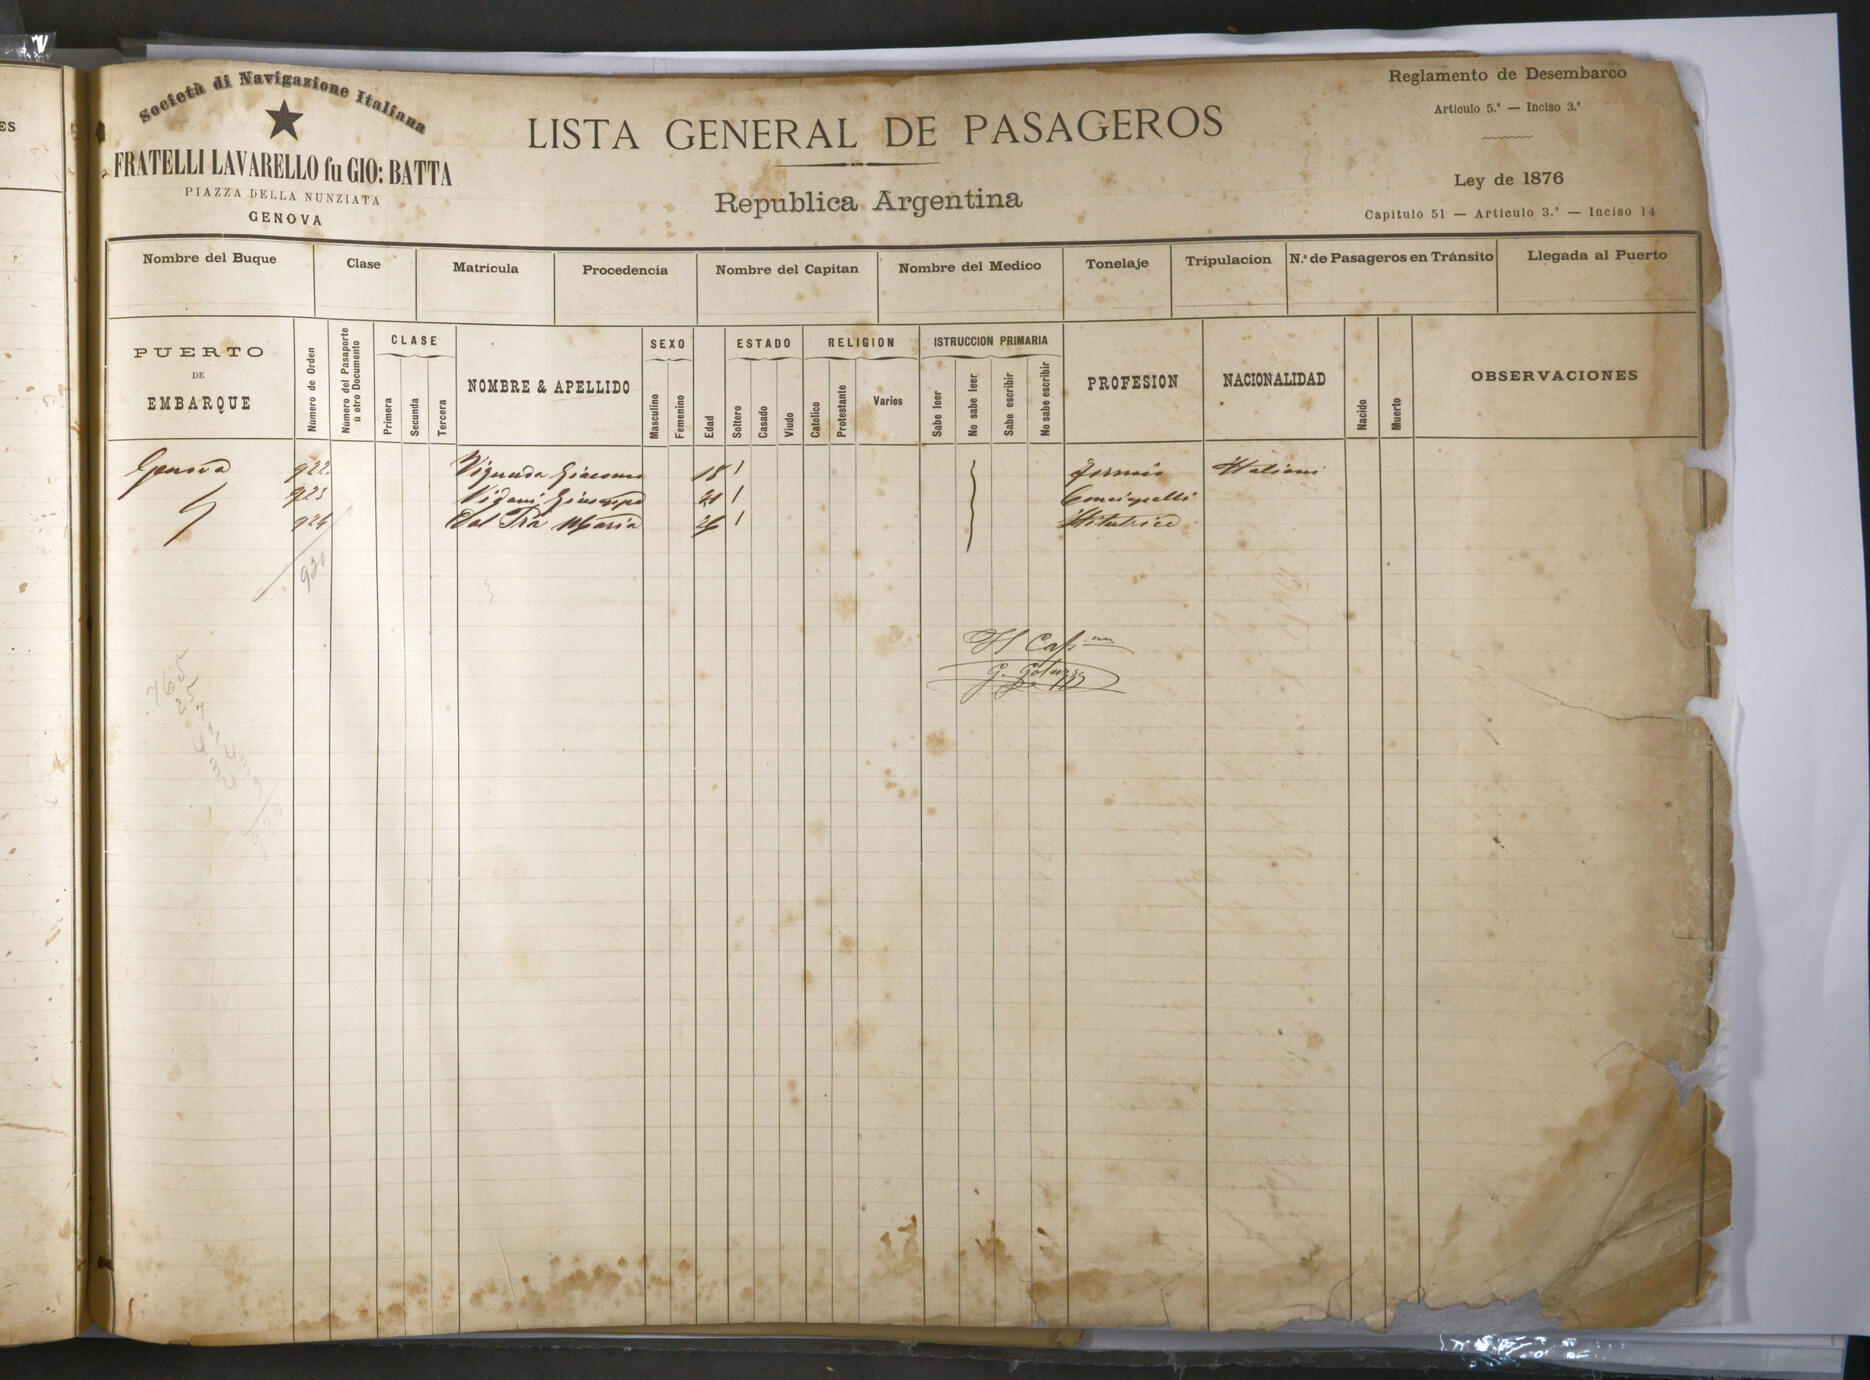 ES
Società di Navigazione Italiana
FRATELLI LAVARELLO fu GIO: BATTA
PIAZZA DELLA NUNZIATA
GENOVA
LISTA GENERAL DE PASAGEROS
Republica Argentina
Reglamento de Desembarco
Articulo 5.° — Inciso 3.°
Ley de 1876
Capitulo 51 — Articulo 3.° — Inciso 14
Nombre del Buque Clase Matricula Procedencia Nombre del Capitan Nombre del Medico Tonelaje Tripulacion N.° de Pasageros en Tránsito Llegada al Puerto
PUERTO
DE
EMBARQUE
Número de Orden
Número del Pasaporte
ú otro Documento
CLASE
Primera
Secunda
Tercera
NOMBRE & APELLIDO
SEXO
Masculino
Femenino
Edad
ESTADO
Soltero
Casado
Viudo
RELIGION
Catolico
Protestante
Varios
ISTRUCCION PRIMARIA
Sabe leer
No sabe leer
Sabe escribir
No sabe escribir
PROFESION
NACIONALIDAD
Nacido
Muerto
OBSERVACIONES
Genova 922 Giacomo 18 1 Italiani
923 Vigani Giuseppe 1
924 Dal Prà Maria 26 1 Istitutrice
930
Il Cap.no
G. Gotuzzo
765